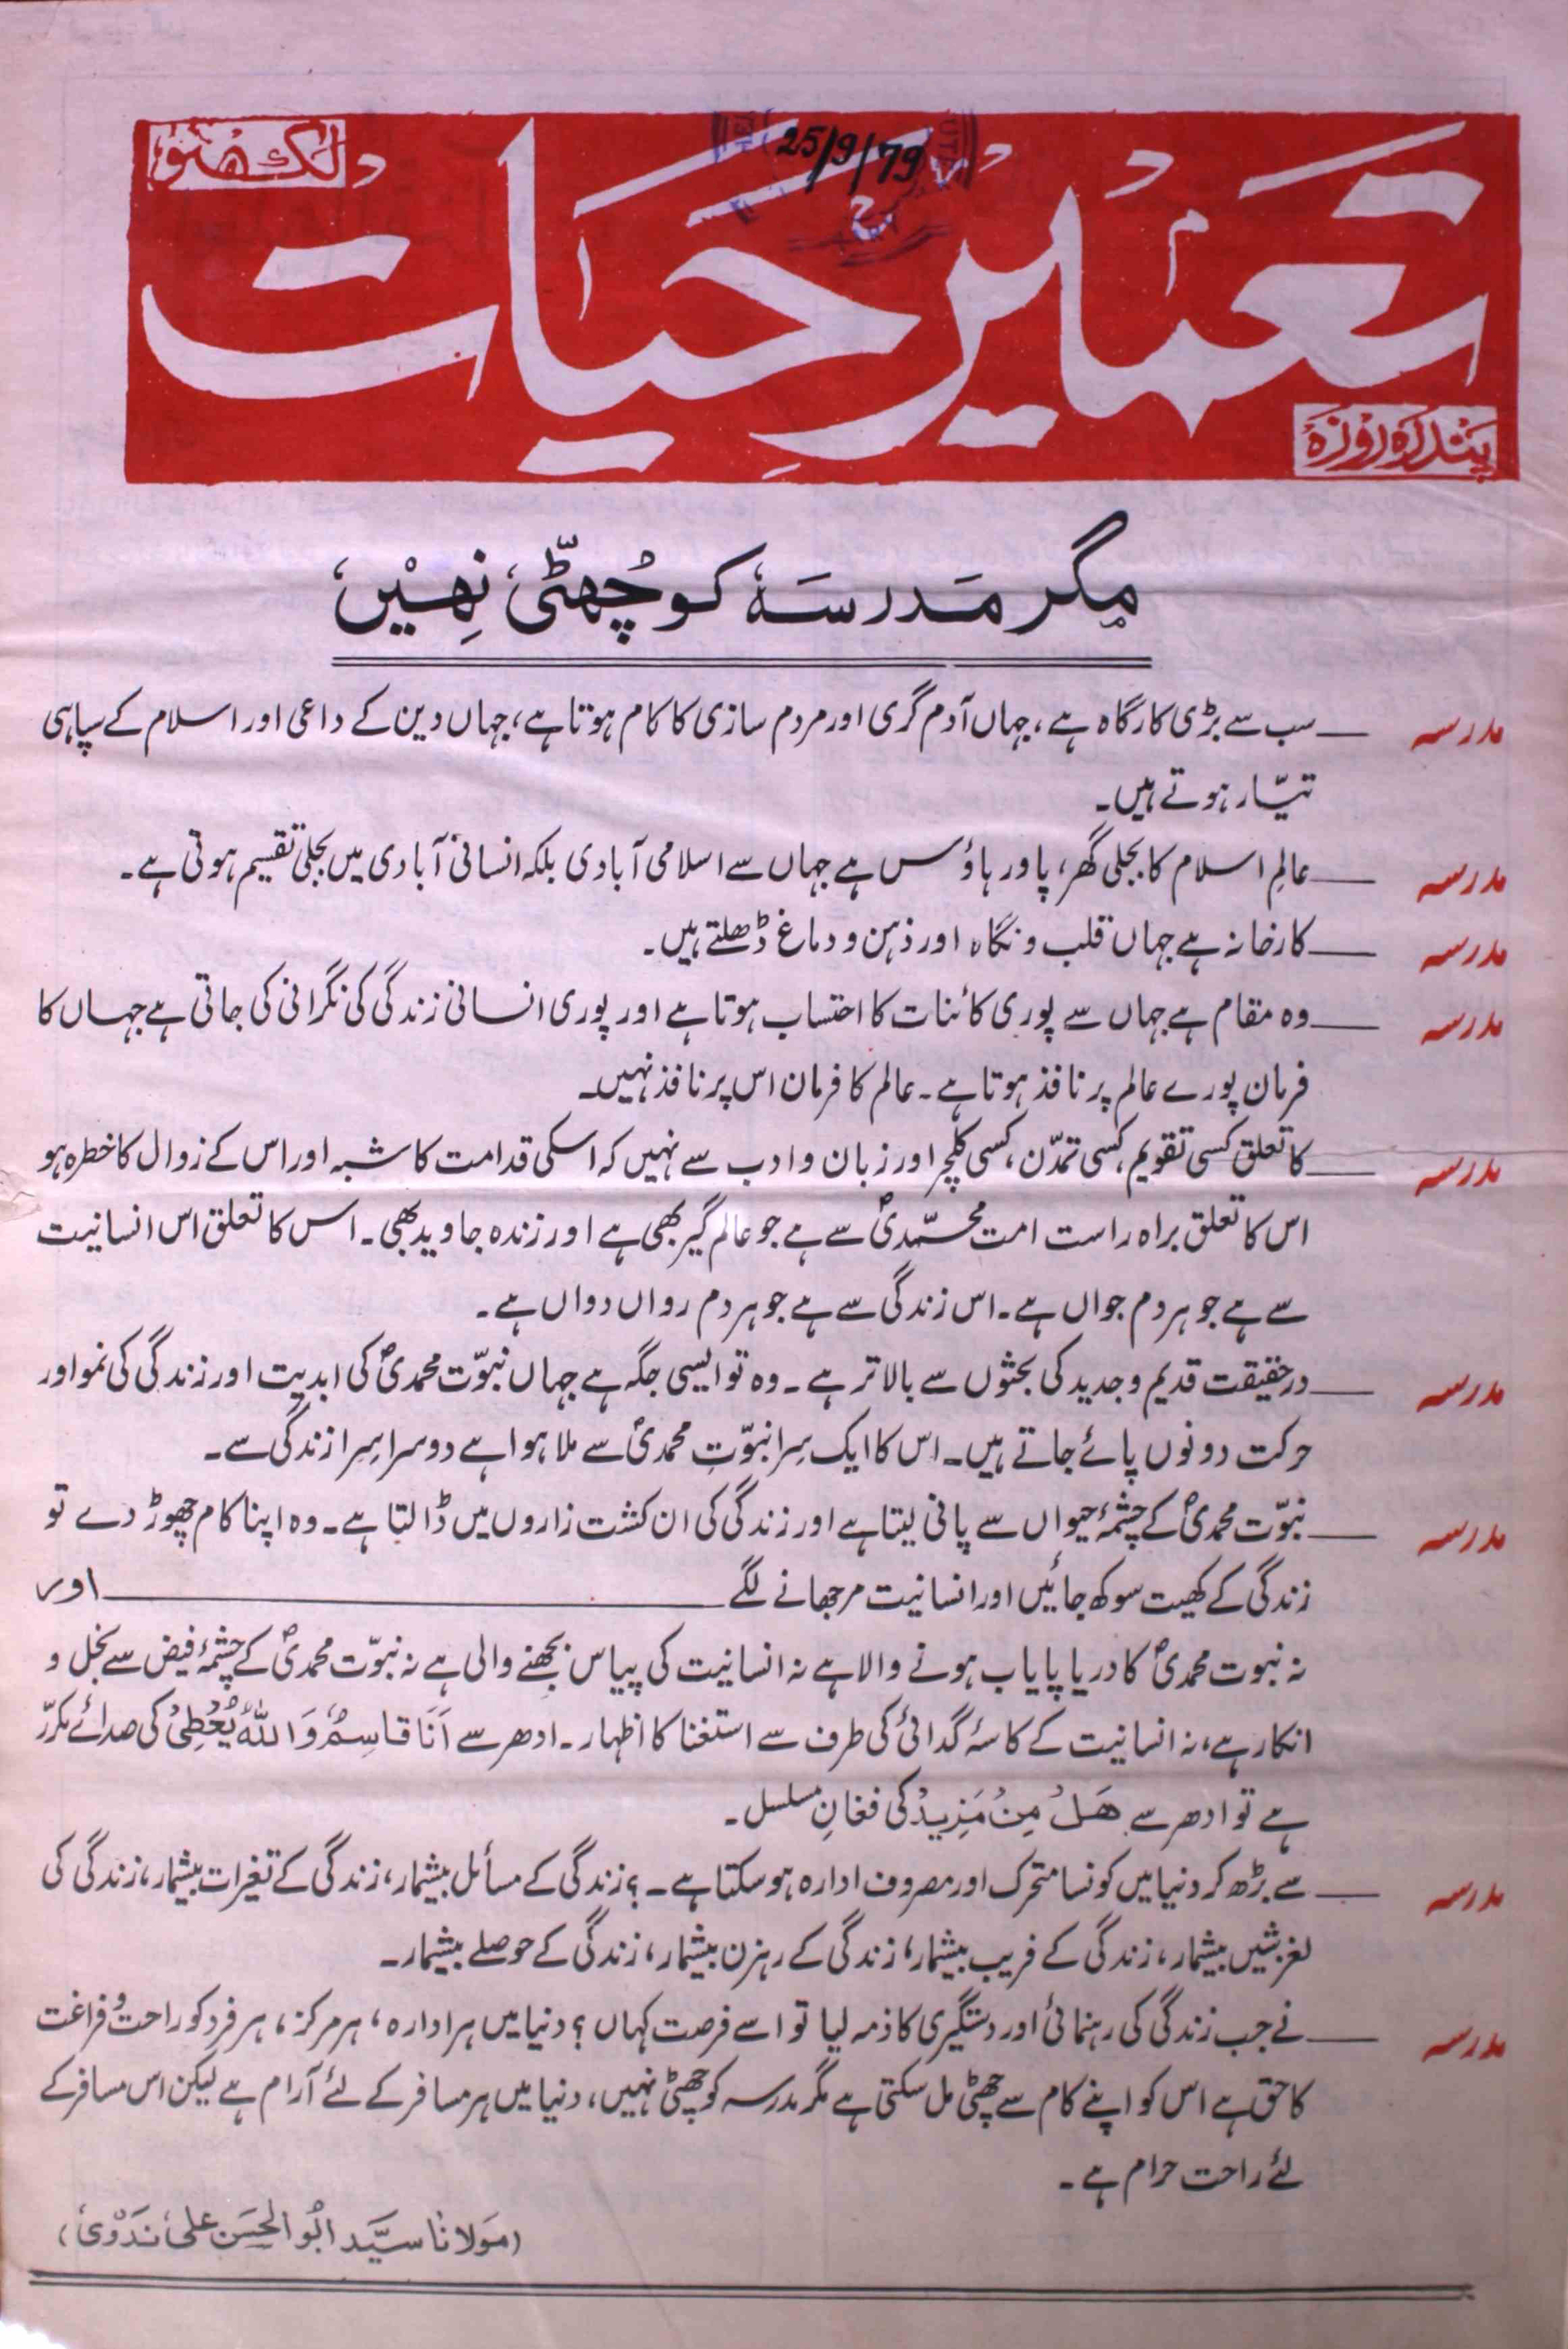 لکھنؤ
25/9/79
تعمیر حیات
پندرہ روزہ
مگر مدرسہ کو چھٹی نہیں
مدرسہ — سب سے بڑی کارگاہ ہے، جہاں آدم گری اور مردم سازی کا کام ہوتا ہے، جہاں دین کے داعی اور اسلام کے سپاہی
تیّار ہوتے ہیں۔
مدرسہ — عالمِ اسلام کا بجلی گھر، پاور ہاؤس ہے جہاں سے اسلامی آبادی بلکہ انسانی آبادی میں بجلی تقسیم ہوتی ہے۔
مدرسہ — کارخانہ ہے جہاں قلب و نگاہ اور ذہن و دماغ ڈھلتے ہیں۔
مدرسہ — وہ مقام ہے جہاں سے پوری کائنات کا احتساب ہوتا ہے اور پوری انسانی زندگی کی نگرانی کی جاتی ہے جہاں کا
فرمان پورے عالم پر نافذ ہوتا ہے۔ عالم کا فرمان اس پر نافذ نہیں۔
مدرسہ — کا تعلق کسی تقویم، کسی تمدّن، کسی کلچر اور زبان و ادب سے نہیں کہ اسکی قدامت کا شبہ اور اس کے زوال کا خطرہ ہو
اس کا تعلق براہ راست امت محمّدیؐ سے ہے جو عالم گیر بھی ہے اور زندہ جاوید بھی۔ اس کا تعلق اس انسانیت
سے ہے جو ہر دم جواں ہے۔ اس زندگی سے ہے جو ہر دم رواں دواں ہے۔
مدرسہ — درحقیقت قدیم و جدید کی بحثوں سے بالاتر ہے۔ وہ تو ایسی جگہ ہے جہاں نبوّت محمدیؐ کی ابدیت اور زندگی کی نمو اور
حرکت دونوں پائے جاتے ہیں۔ اس کا ایک سِرا نبوّتِ محمدیؐ سے ملا ہوا ہے دوسرا سِرا زندگی سے۔
مدرسہ — نبوّت محمدیؐ کے چشمۂ حیواں سے پانی لیتا ہے اور زندگی کی ان کشت زاروں میں ڈالتا ہے۔ وہ اپنا کام چھوڑ دے تو
زندگی کے کھیت سوکھ جائیں اور انسانیت مرجھانے لگے — اور
نہ نبوت محمدیؐ کا دریا پایاب ہونے والا ہے نہ انسانیت کی پیاس بجھنے والی ہے نہ نبوّت محمدیؐ کے چشمۂ فیض سے بخل و
انکار ہے، نہ انسانیت کے کاسۂ گدائی کی طرف سے استغنا کا اظہار۔ ادھر سے اَنَا قَاسِمٌ وَاللّٰہُ یُعْطِیْ کی صدائے مکرّر
ہے تو ادھر سے ھَلْ مِنْ مَّزِیْدٍ کی فغانِ مسلسل۔
مدرسہ — سے بڑھ کر دنیا میں کونسا متحرک اور مصروف ادارہ ہو سکتا ہے۔ ؟ زندگی کے مسائل بیشمار، زندگی کے تغیرات بیشمار، زندگی کی
لغزشیں بیشمار، زندگی کے فریب بیشمار، زندگی کے رہزن بیشمار، زندگی کے حوصلے بیشمار۔
مدرسہ — نے جب زندگی کی رہنمائی اور دستگیری کا ذمہ لیا تو اسے فرصت کہاں؟ دنیا میں ہر ادارہ، ہر مرکز، ہر فرد کو راحت و فراغت
کا حق ہے اس کو اپنے کام سے چھٹی مل سکتی ہے مگر مدرسہ کو چھٹی نہیں، دنیا میں ہر مسافر کے لئے آرام ہے لیکن اس مسافر کے
لئے راحت حرام ہے۔
(مولانا سیّد ابو الحسن علی ندوی)